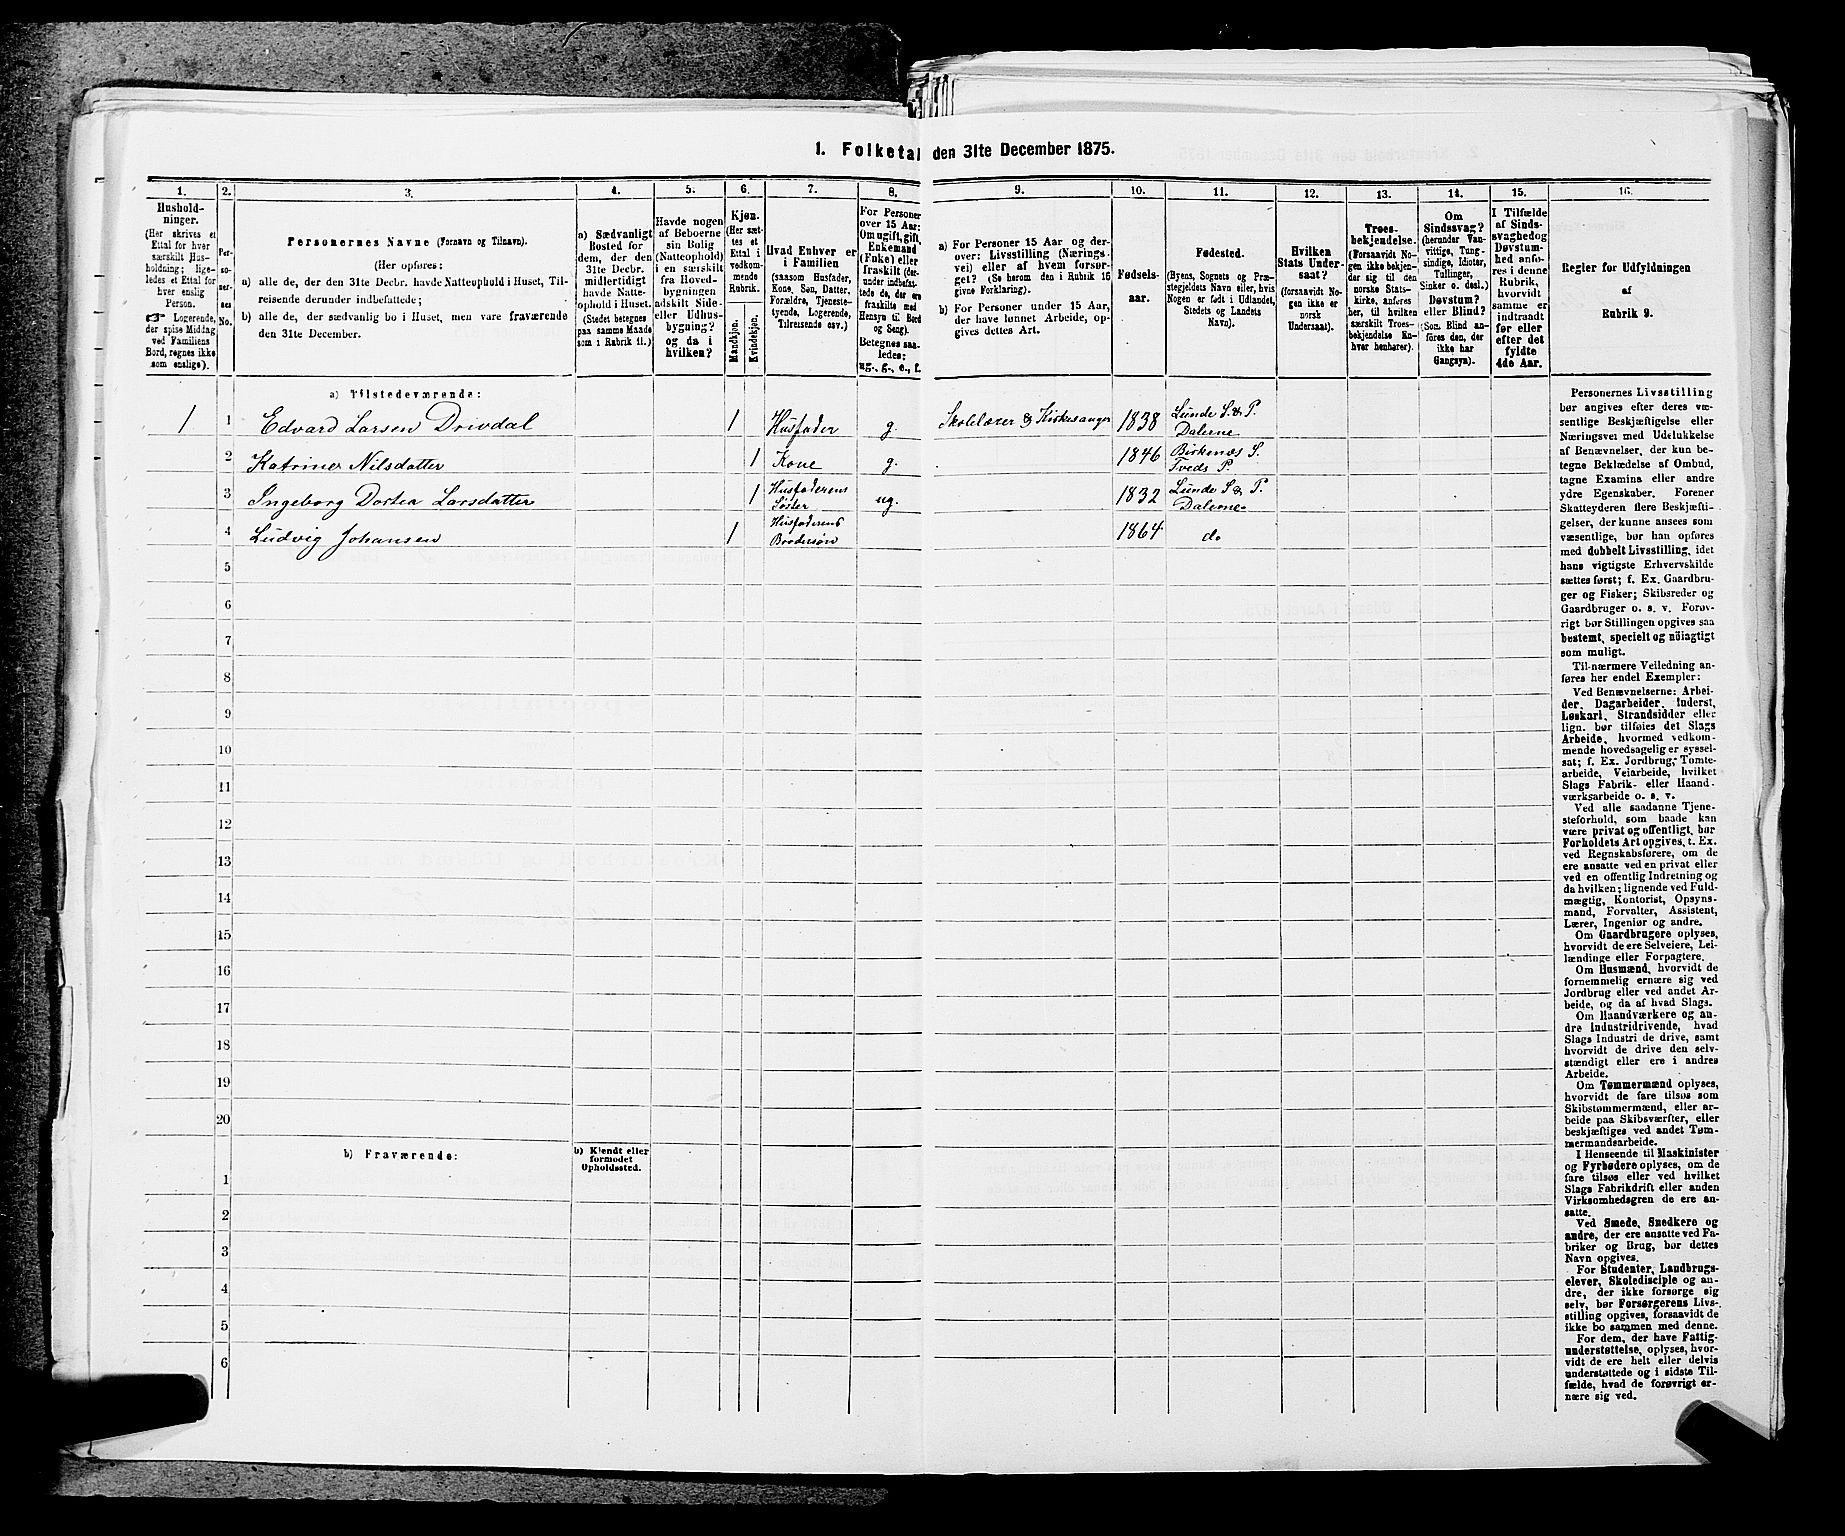 1. Folketal den 31te December 1875.
1. 2. 3. 4. 5. 6. 7. 8. 9. 10. 11. 12. 13. 14. 15. 16.
Hushold-
ninger.
(Her skrives et
Ettal for hver
særskilt Hus-
holdning; lige-
ledes et Ettal for
hver enslig
Person.
☞ Logerende,
der spise Middag
ved Familiens
Bord, regnes ikke
som enslige).
Per-
so-
ner-
nes
No.
Personernes Navne (Fornavn og Tilnavn).
(Her opføres:
a) alle de, der den 31te Decbr. havde Natteophold i Huset, Til-
reisende derunder indbefattede;
b) alle de, der sædvanlig bo i Huset, men vare fraværende
den 31te December.
a) Sædvanligt
Bosted for
dem, der den
31te Decbr.
midlertidigt
havde Natte-
ophold i Huset.
(Stedet betegnes
paa samme Maade
som i Rubrik 11.)
Havde nogen
af Beboerne
sin Bolig
(Natteophold)
i en særskilt
fra Hoved-
bygningen
adskilt Side-
eller Udhus-
bygning?
og da i
hvilken?
Kjøn.
(Her sæt-
tes et
Ettal i
vedkom-
mende
Rubrik.
Mandkjøn.
Kvindekjøn.
Hvad Enhver er
i Familien
(saasom Husfader,
Kone, Søn, Datter,
Forældre, Tjeneste-
tyende, Logerende,
Tilreisende osv.)
For Personer
over 15 Aar:
Om ugift, gift,
Enkemand
(Enke) eller
fraskilt (der-
under indbefat-
tede de, der ere
fraskilte med
Hensyn til Bord
og Seng).
Betegnes saa-
ledes:
ug., g., e., f.
a) For Personer 15 Aar og der-
over: Livsstilling (Nærings-
vei) eller af hvem forsør-
get? (Se herom den i Rubrik 16
givne Forklaring).
b) For Personer under 15 Aar,
der have lønnet Arbeide, op-
gives dettes Art.
Fødsels-
aar.
Fødested.
(Byens, Sognets og Præ-
stegjeldets Navn eller, hvis
Nogen er født i Udlandet,
Stedets og Landets
Navn).
Hvilken
Stats Under-
saat?
(forsaavidt No-
gen ikke er
norsk
Undersaat).
Troes-
bekjendelse.
(Forsaavidt No-
gen ikke bekjen-
der sig til den
norske Stats-
kirke, anføres
her, til hvilken
særskilt Troes-
bekjendelse En-
hver henhører).
Om
Sindssvag?
(herunder Van-
vittige, Tung-
sindige, Idioter,
Tullinger,
Sinker o. desl.)
Døvstum?
eller Blind?
(Som Blind an-
føres den, der
ikke har
Gangsyn).
I Tilfælde
af Sinds-
svaghed og
Døvstum-
hed anfø-
res i denne
Rubrik,
hvorvidt
samme er
indtraadt
før eller
efter det
fyldte
4de Aar.
Regler for Udfyldningen
af
Rubrik 9.
a) Tilstedeværende:
1 1 Edvard Larsen Drivdal 1 Husfader g. Skolelærer & Kirkesanger 1838 Lunde S. & P. Dalerne
2 Katrine Nilsdatter 1 Kone g. 1846 Birkenæs S. Tveds P.
3 Ingeborg Dortea Larsdatter 1 Husfaderens Søster ug. 1832 Lunde S & P. Dalerne
4 Ludvig Johansen 1 Husfaderens Brodersøn 1864 do
5
6
7
8
9
10
11
12
13
14
15
16
17
18
19
20
b) Fraværende:
b) Kjendt eller
formodet
Opholdssted.
1
2
3
4
5
6
Personernes Livsstilling
bør angives efter deres væ-
sentlige Beskjæftigelse eller
Næringsvei med Udelukkelse
af Benævnelser, der kun be-
tegne Beklædelse af Ombud,
tagne Examina eller andre
ydre Egenskaber. Forener
Skatteyderen flere Beskjæfti-
gelser, der kunne ansees som
væsentlige, bør han opføres
med dobbelt Livsstilling, idet
hans vigtigste Erhvervskilde
sættes først; f. Ex. Gaardbru-
ger og Fisker; Skibsreder og
Gaardbruger o. s. v. Forøv-
rigt bør Stillingen opgives saa
bestemt, specielt og nöiagtigt
som muligt.
Til nærmere Veiledning an-
føres her endel Exempler:
Ved Benævnelserne: Arbei-
der, Dagarbeider, Inderst,
Løskarl, Strandsidder eller
lign. bør tilføies det Slags
Arbeide, hvormed vedkom-
mende hovedsagelig er syssel-
sat; f. Ex. Jordbrug, Tomte-
arbeide, Veiarbeide, hvilket
Slags Fabrik- eller Haand-
værksarbeide o. s. v.
Ved alle saadanne Tjene-
steforhold, som baade kan
være privat og offentligt, bør
Forholdets Art opgives, t. Ex.
ved Regnskabsførere, om de
ere ansatte ved en privat eller
ved en offentlig Indretning og
da hvilken; lignende ved Fuld-
mægtig, Kontorist, Opsyns-
mand, Forvalter, Assistent,
Lærer, Ingeniør og andre.
Om Gaardbrugere oplyses,
hvorvidt de ere Selveiere, Lei-
lændinge eller Forpagtere.
Om Husmænd, hvorvidt de
fornemmelig ernære sig ved
Jordbrug eller ved andet Ar-
beide, og da af hvad Slags.
Om Haandværkere og an-
dre Industridrivende, hvad
Slags Industri de drive, samt
hvorvidt de drive den selv-
stændigt eller ere i andres
Arbeide.
Om Tømmermænd oplyses,
hvorvidt de fare tilsøs som
Skibstømmermænd, eller ar-
beide paa Skibsværfter, eller
beskjæftiges ved andet Tøm-
mermandsarbeide.
I Henseende til Maskinister
og Fyrbødere oplyses, om de
fare tilsøs eller ved hvilket
Slags Fabrikdrift eller anden
Virksomhedsgren de ere an-
satte.
Ved Smede, Snedkere og
andre, der ere ansatte ved Fa-
briker og Brug, bør dettes
Navn opgives.
For Studenter, Landbrugs-
elever, Skoledisciple og an-
dre, der ikke forsørge sig
selv, bør Forsørgerens Livs-
stilling opgives, forsaavidt de
ikke bo sammen med denne.
For dem, der have Fattig-
understøttelse, oplyses, hvor-
vidt de ere helt eller delvis
understøttede og i sidste Til-
fælde, hvad de forøvrigt er-
nære sig ved.